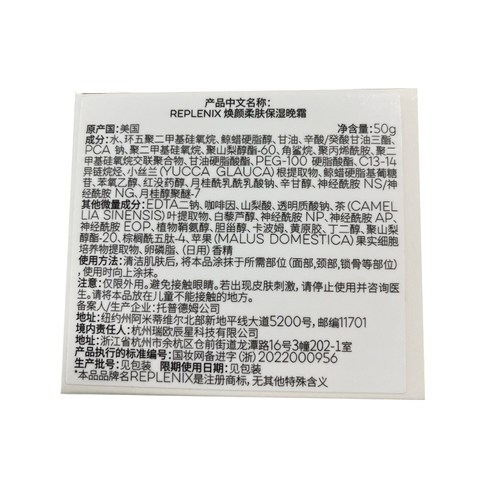 产品中文名称：
REPLENIX 焕颜柔肤保湿晚霜
原产国：美国 净含量：50g
成分：水、环五聚二甲基硅氧烷、鲸蜡硬脂醇、甘油、辛酸/癸酸甘油三酯、
PCA 钠、聚二甲基硅氧烷、聚山梨醇酯-60、角鲨烷、聚丙烯酰胺、聚二
甲基硅氧烷交联聚合物、甘油硬脂酸酯、PEG-100 硬脂酸酯、C13-14
异链烷烃、小丝兰(YUCCA GLAUCA)根提取物、鲸蜡硬脂基葡糖
苷、苯氧乙醇、红没药醇、月桂酰乳酰乳酸钠、辛甘醇、神经酰胺 NS/神
经酰胺 NG、月桂醇聚醚-7
其他微量成分：EDTA二钠、咖啡因、山梨酸、透明质酸钠、茶(CAMEL
LIA SINENSIS)叶提取物、白藜芦醇、神经酰胺 NP、神经酰胺 AP、
神经酰胺 EOP、植物鞘氨醇、胆甾醇、卡波姆、黄原胶、丁二醇、聚山梨
醇酯-20、棕榈酰五肽-4、苹果(MALUS DOMESTICA)果实细胞
培养物提取物、卵磷脂、(日用)香精
使用方法：清洁肌肤后，将本品涂抹于所需部位(面部,颈部,锁骨等部位)
，使用时向上涂抹。
注意：仅限外用。避免接触眼睛。若出现皮肤刺激，请停止使用并咨询医
生。请将本品放在儿童不能接触的地方。
备案人/生产企业：托普德姆公司
地址：纽约州阿米蒂维尔北部新地平线大道5200号，邮编11701
境内责任人：杭州瑞欧辰星科技有限公司
地址：浙江省杭州市余杭区仓前街道龙潭路16号3幢202-1室
产品执行的标准编号：国妆网备进字（浙）2022000956
生产批号：见包装 限期使用日期：见包装
*本品品牌名REPLENIX是注册商标，无其他特殊含义